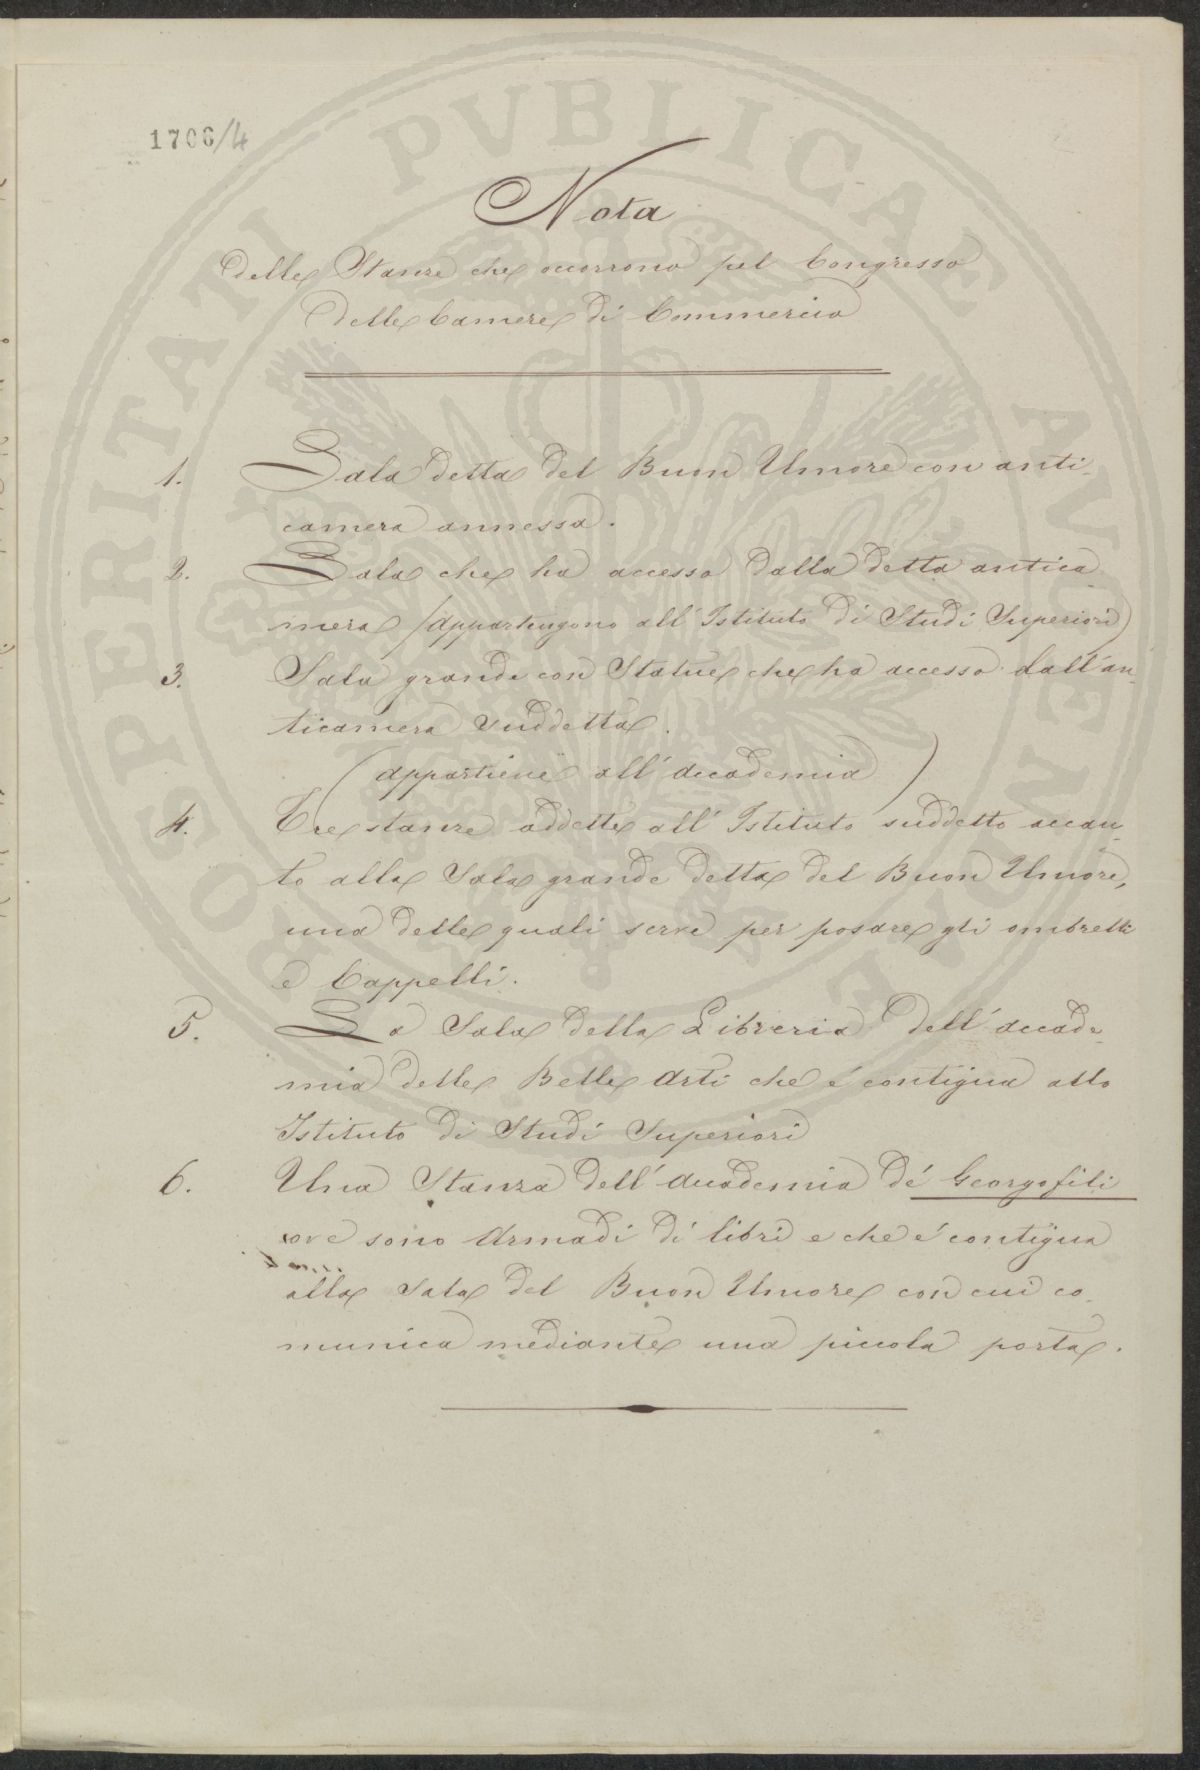 1706/4
Nota
delle Stanze che occorrono pel Congresso
delle Camere di Commercio
1. Sala detta del Buon Umore con anti-
camera annessa.
2. Sala che ha accesso dalla detta antica
mera (appartengono all'Istituto di Studi Superiori)
3. Sala grande con Statue che ha accesso dall'an-
ticamera suddetta.
(appartiene all'accademia)
4. Tre stanze addette all'Istituto suddetto accan-
to alla Sala grande detta del Buon Umore,
una delle quali serve per posare gli ombrelli
e Cappelli.
5. La Sala della Libreria dell'accade-
mia delle Belle Arti che é contigua allo
Istituto di Studi Superiori
6. Una Stanza dell'Accademia de' Georgofili
ove sono Armadi di libri e che é contigua
alla Sala del Buon Umore con cui co-
munica mediante una piccola porta.
PROSPERITATI PVBLICAE AVGENDAE